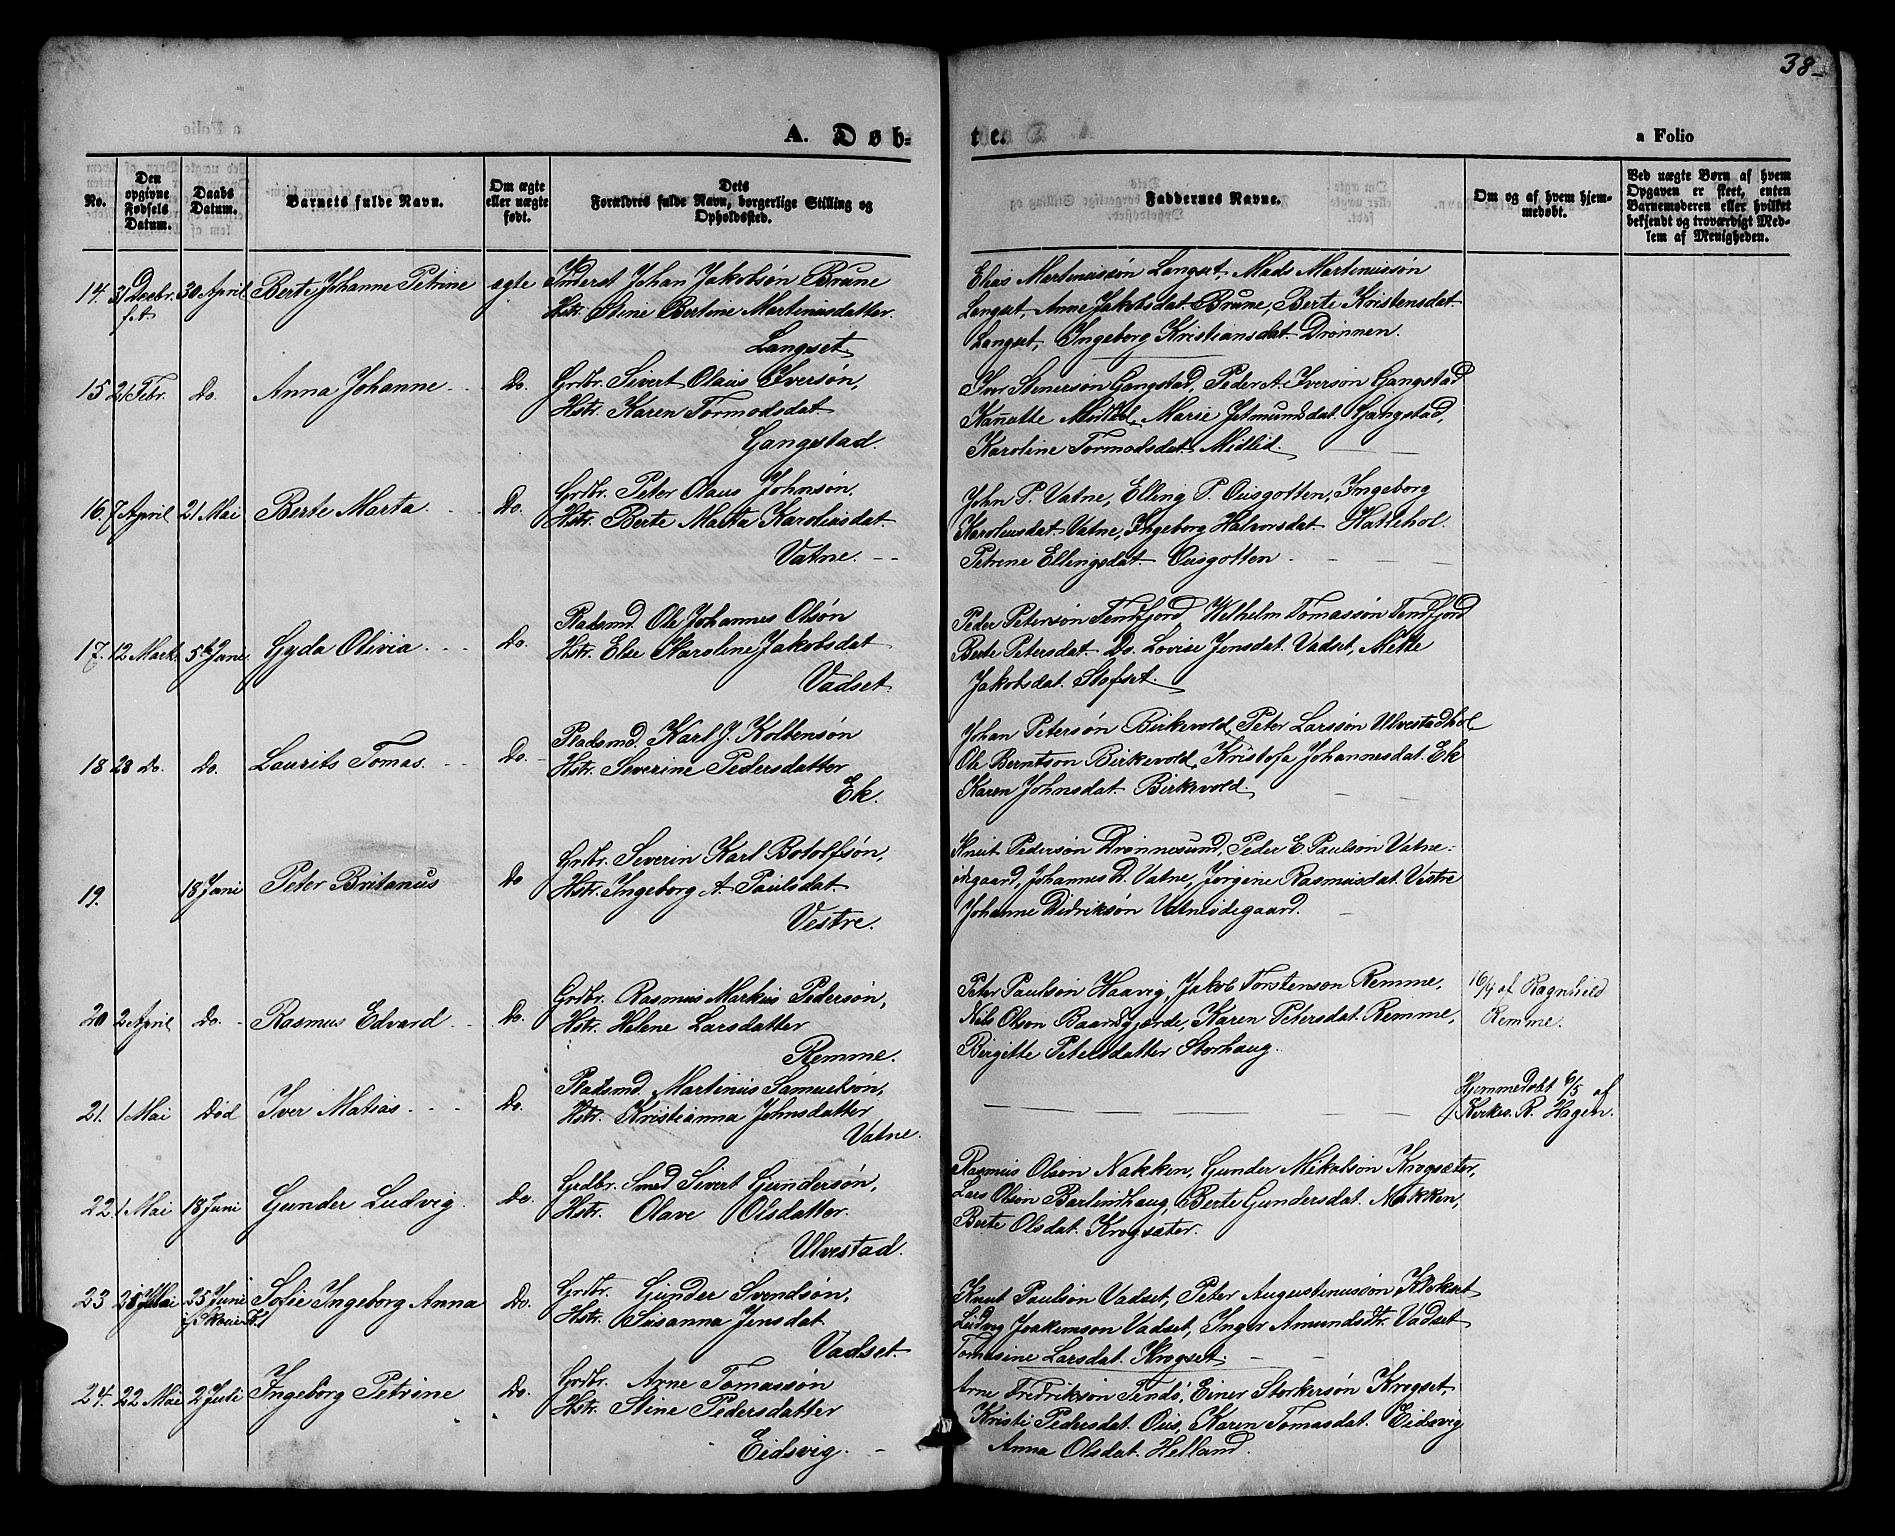 38
A. Døb-
te.
a Folio
No.
Den opgivne Fødsels Datum.
Daabs Datum.
Barnets fulde Navn.
Om ægte eller uægte født.
Dets Forældres fulde Navn, borgerlige Stilling og Opholdssted.
Faddernes Navne.
Om og af hvem hjemmedøbt.
Ved uægte Børn af hvem Opgaven er skeet, enten Barnemoderen eller hvilket bekjendt og troværdigt Medlem af Menigheden.
14. 31 Decbr. f.A. 30 April Berte Johanne Petrine ægte Inderst Johan Jakobsøn Brune
Hstr. Stine Bertine Martinusdatter
Langset
Elias Martinussøn Langset, Mads Martinussøn
Langset, Anne Jakobsdat. Brune, Berte Kristensdat.
Langset, Ingeborg Kristiansdat. Drønnen.
15 21 Febr. Do. Anna Johanne Do. Grdbr. Sivert Olaus Iversøn,
Hstr. Karen Tormodsdat
Gangstad.
Iver Gangstad, Peder A. Iversøn Gangstad
Midtlid, Marie Jetmundsdat. Gangstad,
Karoline Tormodsdat. Midlid.
16. 7 April 21 Mai Berte Marta Do. Grdbr. Peter Olaus Johnsøn,
Hstr. Berte Marta Karolusdat
Vatne.
John P. Vatne, Elling P. Ousgotten, Ingeborg
Karolusdat. Vatne, Ingeborg Halvorsdat. Hattehol.
Petrine Ellingsdat. Ousgotten
17. 12 Marts 5te June Gyda Olivia Do. Pladsmd. Ole Johannes Olsøn
Hstr. Else Karoline Jakobsdat
Vadset
Peder Petersøn Tendfjord, Wilhelm Tomassøn Tendfjord
Berte Petersdat. Do. Lovise Jensdat. Vadset, Mette
Jakobsdat. Slofset.
18 28 Do. Do. Laurits Tomas. Do. Pladsmd. Karl J. Kolbensøn
Hstr. Severine Pedersdatter
Ek.
Johan Petersøn Birkevold, Peter Larssøn Ulvestadhol
Ole Berntson Birkevold, Kristofa Johannesdat. Ek
Karen Johnsdat. Birkevold.
19. 18 Juni Peter Britanus Do Grdbr. Severin Karl Botolfsøn,
Hstr. Ingeborg A. Paulsdat.
Vestre.
Knut Pedersøn Drønnesund, Peder E. Paulsøn Vatne-
ødegaard, Johannes D. Vatne, Jørgine Rasmusdat. Vestre
Johanne Didriksøn Vatneødegaard.
20 2 April Do. Rasmus Edvard Do. Grdbr. Rasmus Markus Pedersøn,
Hstr. Helene Larsdatter
Remme.
Peter Paulsøn Haavig, Jakob Torstenson Remme,
Nils Olsøn Baardsgjærde, Karen Petersdat. Remme,
Birgitte Petersdatter Storhaug.
16/4 af Ragnhild
Remme.
21. 1 Mai Død Iver Matias Do. Pladsmd. Martinus Samuelsøn,
Hstr. Kristianna Johnsdatter
Vatne.
Hjemmedøbt 6/5 af
Kirkes. R. Hagen.
22. 1 Mai 18 Juni Gunder Ludvig. Do. Grdbr. Smed Sivert Gundersøn,
Hstr. Olave Olsdatter.
Ulvestad.
Rasmus Olsøn Nakken, Gunder Mikalsøn Krogsæter,
Lars Olsøn Barlindhaug, Berte Gundersdat. Nakken,
Berte Olsdat. Krogsæter.
23 Mai 25 Juni Sofie Ingeborg Anna Do. Grdbr. Gunder Svendsøn,
Hstr. Susanna Jensdat
Vadset
Knut Paulsøn Vadset, Peter Augustinussøn
Ludvig Joakimson Vadset, Inger Amundsdtr. Vadset
Tomasine Larsdat. Krogset.
24. 22 Mai 2 Juli Ingeborg Petrine Do. Grdbr. Arne Tomassøn
Hstr. Stine Pedersdatter
Eidsvig.
Arne Fredriksøn Tendø, Einer Storkersøn Krogset,
Kristi Pedersdat. Ous, Karen Tomasdat. Eidsvig
Anna Olsdat. Helland.